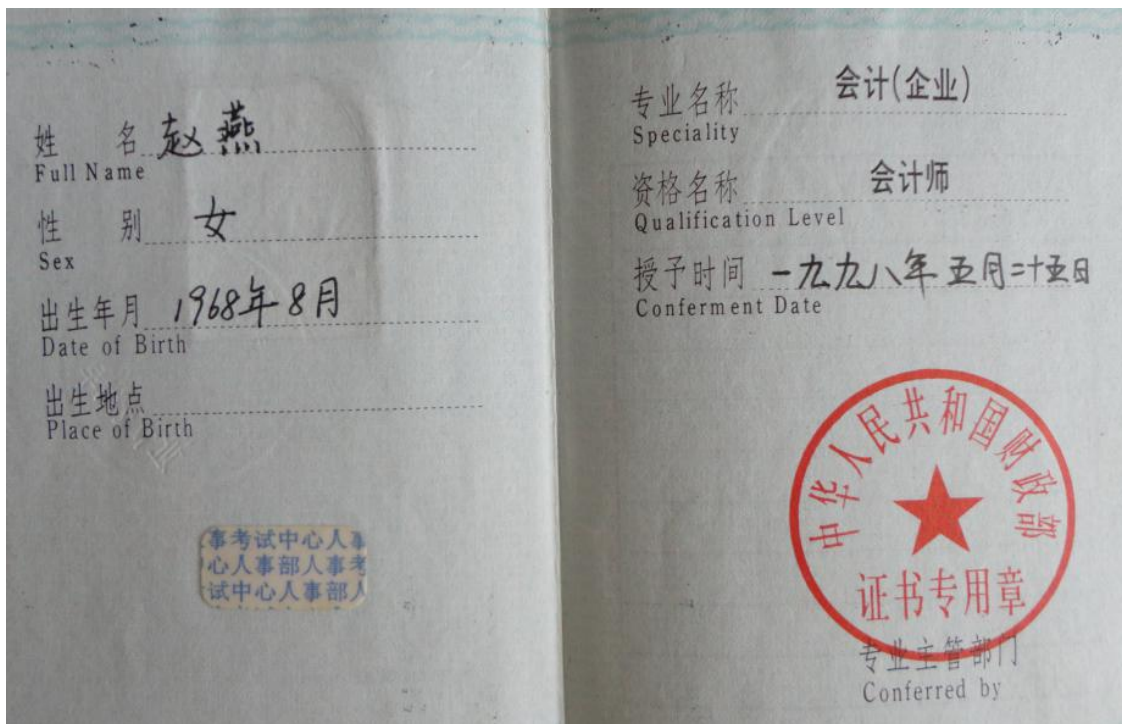 姓 名 赵燕
Full Name
性 别 女
Sex
出生年月 1968年8月
Date of Birth
出生地点
Place of Birth
事考试中心人事
心人事部人事考
试中心人事部人
专业名称 会计(企业)
Speciality
资格名称 会计师
Qualification Level
授予时间 一九九八年五月二十五日
Conferment Date
中华人民共和国财政部
证书专用章
专业主管部门
Conferred by